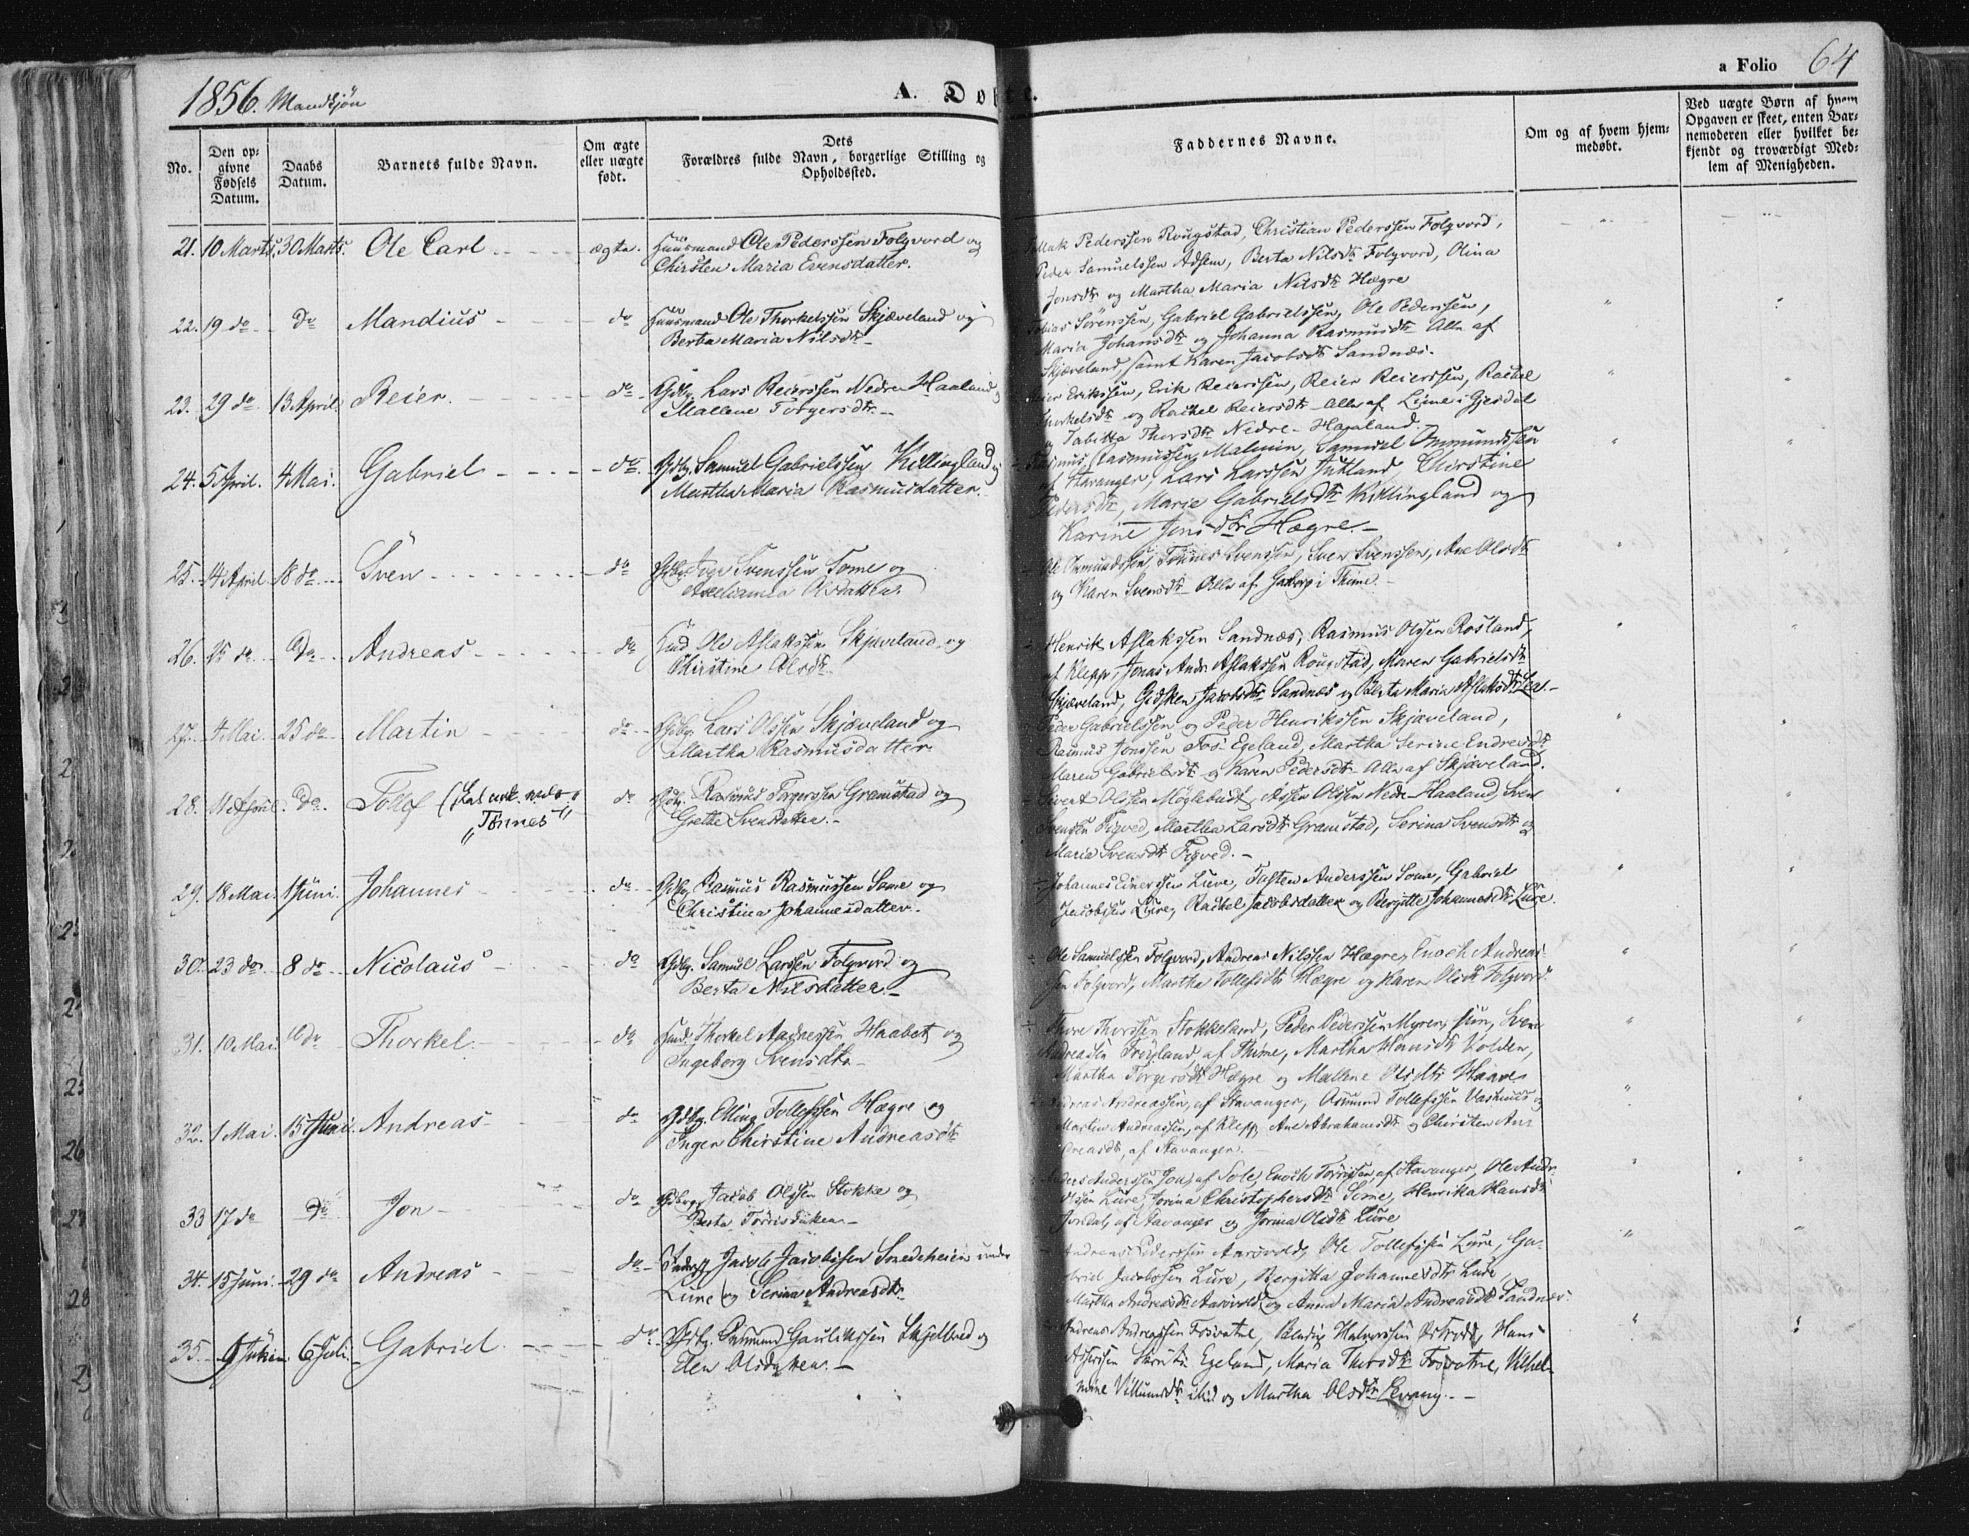 1856. Mandkjøn
A. Døbte.
a Folio 64
No.
Den opgivne Fødsels Datum.
Daabs Datum.
Barnets fulde Navn.
Om ægte eller uægte født.
Dets Forældres fulde Navn, borgerlige Stilling og Opholdssted.
Faddernes Navne.
Om og af hvem hjemmedøbt.
Ved uægte Børn af hvem Opgaven er skeet, enten Barnemoderen eller hvilket bekjendt og troværdigt Medlem af Menigheden.
21. 10 Marts. 30 Marts. Ole Carl ægte. Huusmand Ole Pederssen Folgvord og
Chirsten Maria Evensdatter.
Pederssen Rougstad, Christian Pederssen Folgvord,
Peder Samuelssen Adsem, Berta Nilsdtr Folgvord, Olina
Jonsdtr og Martha Maria Nilsdtr Høgre
22. 19 do Do Mandius do Huusmand Ole Thorkelssen Skjæveland og
Berta Maria Nilsdtr
Tobias Sørenssen, Gabriel Gabrielssen, Ole Pederssen,
Maria Johansdtr og Johanna Rasmusdtr Alle af
Skjæveland, samt Karen Jacobsdtr Sandnæs.
23. 29 do 13 April. Reier. do Gdbg. Lars Reierssen Nedre Haaland og
Mallene Torgersdtr
Erikssen, Erik Reierssen, Reier Reierssen, Rachel
Thorkelsdtr og Rachel Reiersdtr Alle af Lime i Gjesdal
og Tabitta Thorsdtr Nedre-Haaland.
24. 5 April. 4 Mai. Gabriel do Gdbg. Samuel Gabrielssen Killingland og
Martha Maria Rasmusdatter.
Rasmus Rasmussen Malmin, Samuel Ommundssen
af Stavanger, Lars Larssen Jutland, Chirstine
Pedersdtr, Marie Gabrielsdtr Killingland og
Karine Jensdtr Høgre.
25. 14 April. 18 do Sven do Gdbg. Svenssen Some og
Olsdatter.
Ole Ommundssen, Tønnes Svenssen, Sven Svenssen, Ane Olsdtr
og Karen Svensdtr Alle af i Thime.
26. 25 do Do Andreas do Huusmd Ole Aslakssen Skjæveland og
Christine Olsdtr
Henrik Aslakssen Sandnæs, Rasmus Olssen Rosland,
af Klepp, Jonas Andr. Aslakssen Rougstad, Maren Gabrielsdtr
Skjæveland, Gidsken Jacobsdtr Sandnæs og Berta Maria Aslaksdtr
27. 4 Mai. 25 do Martin do Gdbg. Lars Olssen Skjæveland og
Martha Rasmusdatter
Peder Gabrielssen og Peder Henrikssen Skjæveland,
Rasmus Jonssen Fos Egeland, Martha Serine Endresdtr,
Maren Gabrielsdtr og Karen Pedersdtr Alle af Skjæveland.
28. April. Do. Tollef
"Tønnes"
do Gdbg. Rasmus Torgerssen Gramstad og
Grethe Svendatter.
Sivert Olssen Møglebust, Olssen Nedre-Haaland, Sven
Svenssen Figved, Martha Larsdtr Gramstad, Serina Svensdtr og
Maria Svensdtr Figved.
29. 18 Mai. 1 Juni. Johannes do Gdbg. Rasmus Rasmussen Some og
Christina Johannesdatter.
Johannes Einerssen Lure, Tosten Anderssen Some, Gabriel
Jacobssen Lure, Rachel Jacobsdatter og Bergitte Johannesdtr Lure.
30. 23 do 8 do Nicolaus do Gdbg. Samuel Larssen Folgvord og
Berta Nilsdatter.
Ole Samuelssen Folgvord, Andreas Nilssen Høgre, Enoch Andreas-
sen Folgvord, Martha Tollefsdtr Høgre og Karen Olsdtr Folgvord
31. 10 Mai. do Thorkel. do Thorkel Andressen Haabet og
Ingeborg Svensdtr
Thore Thorssen Stokkeland, Peder Pederssen Myren, Sven
Andreassen Frøyland af Thime, Martha Hansdtr Volden,
Martha Torgersdtr Høgre og Mallene Olsdtr Haave
32. 1 Mai. 15 Juni. Andreas do Gdbg. Elling Tollefssen Høgre og
Inger Chirstine Andreasdtr
Andreas Andreassen, af Stavanger, Osmund Tollefssen Vasbund og
Martin Andreassen, af Klepp, Ane Abrahamsdtr og Chirsten An-
dreasdtr, af Stavanger.
33 17 do Do Jon do Gdbrg. Jacob Olssen Stokke og
Berta Tørrisdatter.
Anders Anderssen Jon af Sole, Enoch Tørrissen af Stavanger, Ole Andr.
Olssen Lure, Jorina Christophersdtr Seme, Henrika Hansdtr
Jordal, af Stavanger og Jorina Olsdtr Lure
34. 15 Juni. 29 do Andreas do Jacob Jacobssen Snedeheien under
Lure og Serina Andreasdtr
Andreas Pederssen Aarsvold, Ole Tollefssen Lure, Ga-
briel Jacobssen Lure, Bergitta Johannesdtr Lure,
Martha Andreasdtr Aarsvold og Anna Maria Andreasdtr Sandnæs.
35. 6 Juli. Gabriel. do Gdbg. Osmund Gaulikssen Skjelbred og
Elen Olsdatter.
Andreas Andreassen Fosvatne, Halvorssen Østraadt, Hans
Asserssen Egeland, Maria Thorsdtr Fosvatne, Vilhel-
mine Villumsdtr ibid og Martha Olsdtr